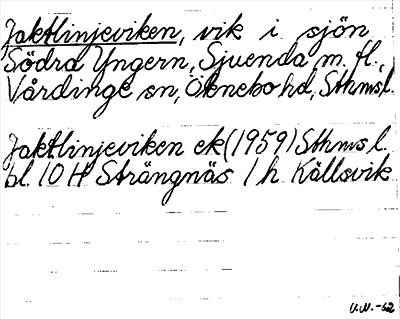 Jaktlinjeviken, vik i sjön
Södra Yngern, Sjuenda m. fl.,
Vårdinge sn, Öknebo hd, Sthms l.
Jaktlinjeviken ek (1959) Sthms l.
bl. 10 H Strängnäs 1 h Källsvik
U.N. -62